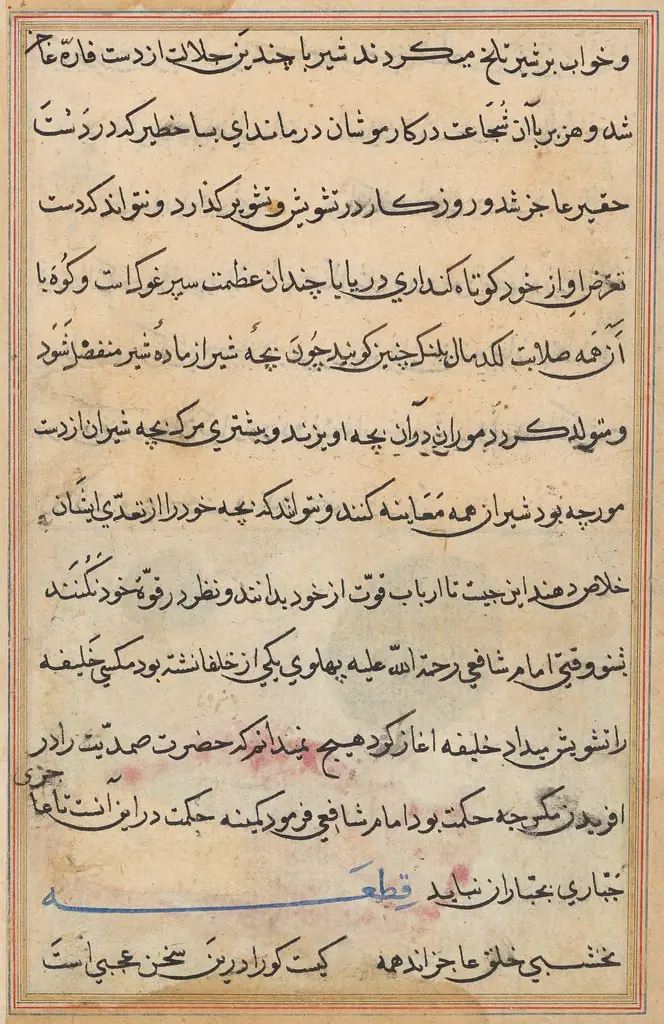 و خواب بر شیر تلخ میکردند شیر با چندین جلالت از دست فارهٔ عاجز
شد و هزبر با آن شُجَاعت در کار موشان درماند ای بسا خطیر که در دَسْت
حقیر عاجز شد و روزکار در تشویش و تشویر کذارد و نتواند که دست
تعرّض او از خود کوتاه کند اری دریا با چندان عظمت سپر غوک است و کُوه با
آن همه صلابت لکدمال پلنک چنین کویند چُونَ بچهٔ شیر از مادهٔ شیر منفصل شَوَد
و متولد کردد موران دران بچه اویزند و بیشتری مرک بچه شیران از دست
مورچه بود شیران همه مَعَاینه کنند و نتوانند که بچه خود را از تعدّی ایشان
خلاص دهند این چیست تا ارباب قوّت از خود بدانند و نظر در قوّة خود نکُنَند
بشنو وقتی امام شافعی رحمة اللّه علیه پهلوی یکی از خلفا نشته بود مکسی خَلیفه
را تشویش میداد خلیفه اغاز کرد هیچ نمیدانم که حضرت صمدیّت را در
افریدن مکس چه حکمت بود امام شافعی فرمود کمینه حکمت در این آنست تا عاجزی
جَبّاری بجبّاران نماید قِطعَـه
نخشبی خلق عاجزاند همه کیست کو را درین سخن عجبی است